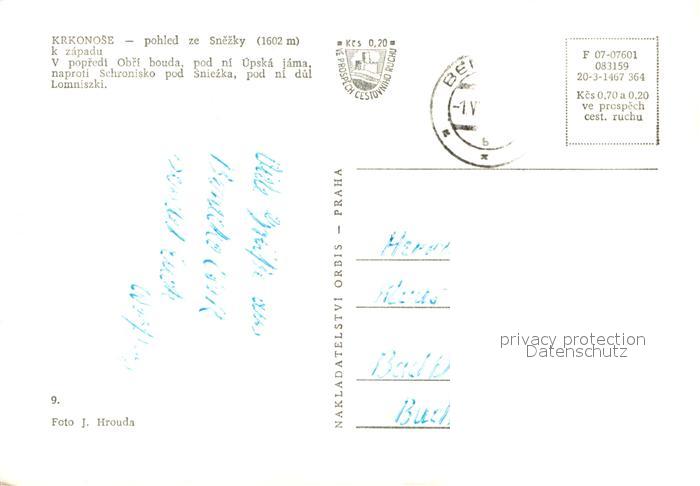 KRKONOŠE — pohled ze Sněžky (1602 m)
k západu
V popředí Obří bouda, pod ní Úpská jáma,
naproti Schronisko pod Snieżka, pod ní důl
Lomniszki.
Kčs 0,20
VE PROSPĚCH CESTOVNÍHO RUCHU
BE
-1.V
6
F 07-07601
083159
20-3-1467 364
Kčs 0,70 a 0,20
ve prospěch
cest. ruchu
NAKLADATELSTVÍ ORBIS — PRAHA
Viele Grüße aus
Herrn
Klaus
Bad
Buch
privacy protection
Datenschutz
9.
Foto J. Hrouda